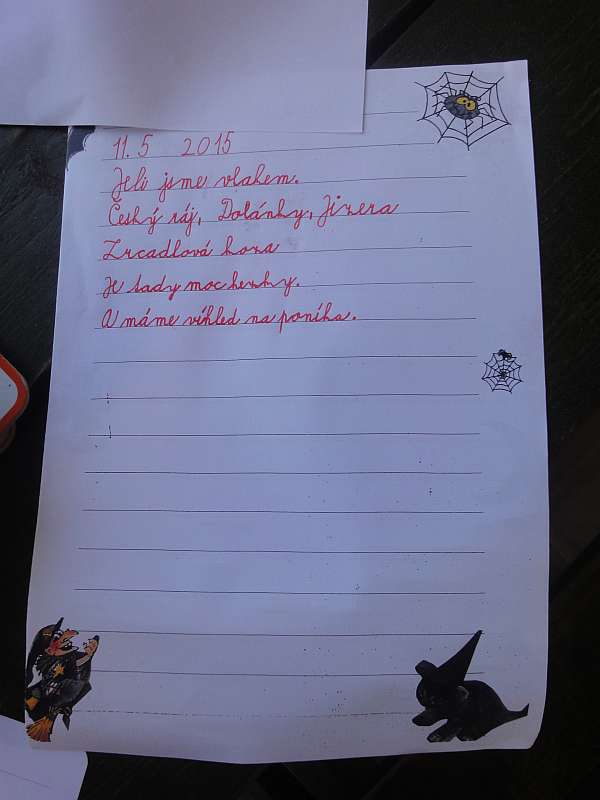 11. 5 2015
Jeli jsme vlakem.
Český ráj, Dolánky, Jizera
Zrcadlová koza
Je tady moc hezky.
A máme víhled na poníka.